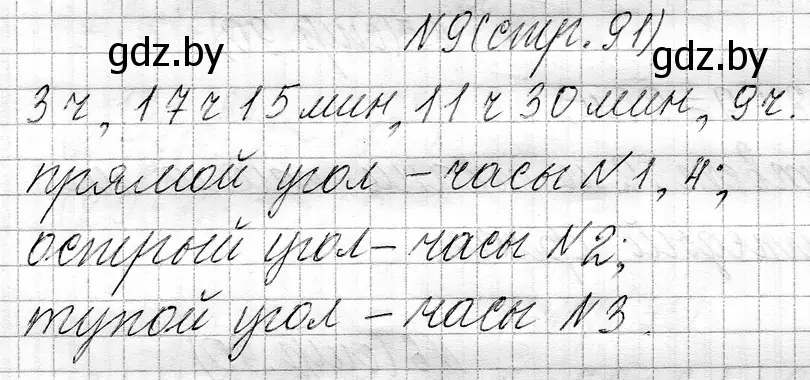 №9(стр.91)
gdz.by
gdz.by
3ч, 17ч 15мин, 11ч 30мин, 9ч.
прямой угол – часы №1, 4;
острый угол – часы №2;
тупой угол – часы №3.